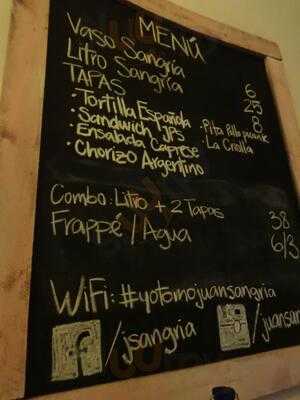 MENÚ
Vaso Sangría 6
Litro Sangría 25
TAPAS 8
· Tortilla Española · Pita Pollo
· Sandwich JPS · La Criolla
· Ensalada Caprese
· Chorizo Argentino
Combo: Litro + 2 Tapas 38
Frappé / Agua 6/3
WiFi: #yotomojuansangria
f /jsangria /juansan